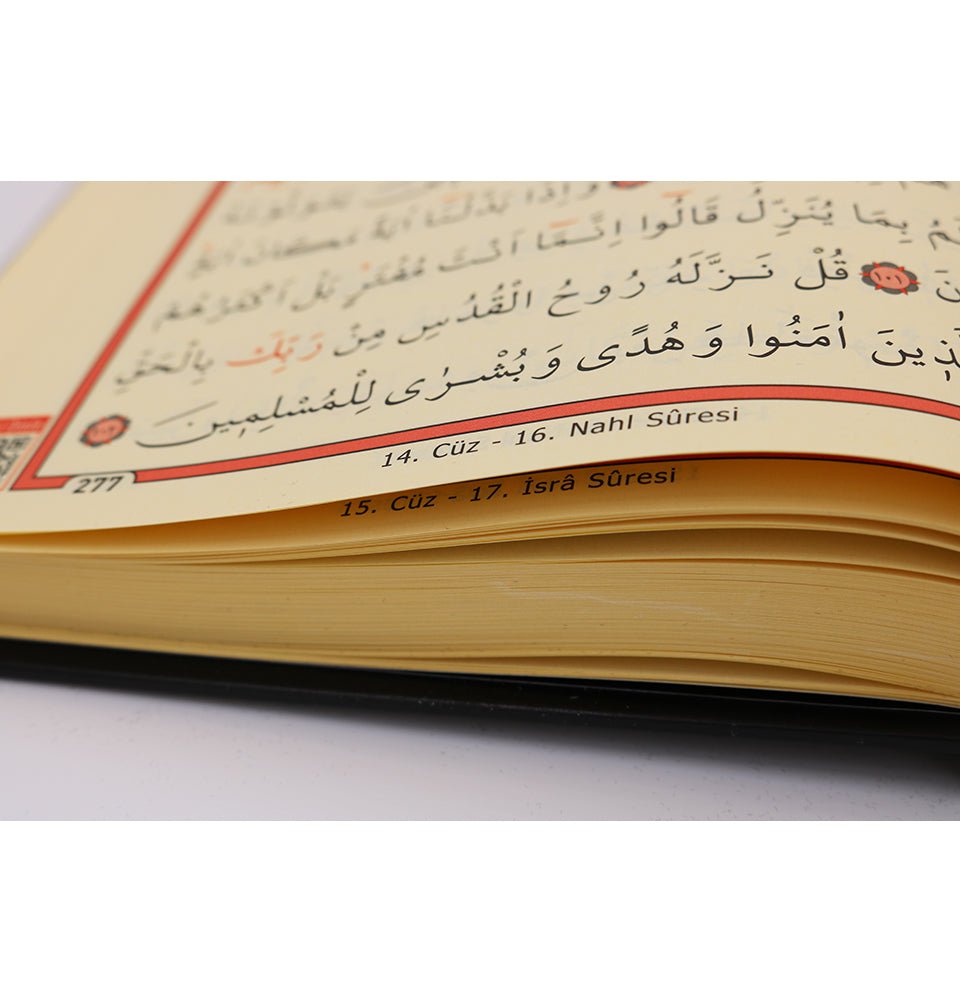 وَاِذَا بَدَّلْنَٓا اٰيَةً مَكَانَ اٰيَةٍ
بِمَا يُنَزِّلُ قَالُٓوا اِنَّمَٓا اَنْتَ مُفْتَرٍۜ بَلْ اَكْثَرُهُمْ
قُلْ نَزَّلَهُ رُوحُ الْقُدُسِ مِنْ رَبِّكَ بِالْحَقِّ
اٰمَنُوا وَهُدًى وَبُشْرٰى لِلْمُسْلِم۪ينَ
277
14. Cüz - 16. Nahl Sûresi
15. Cüz - 17. İsrâ Sûresi